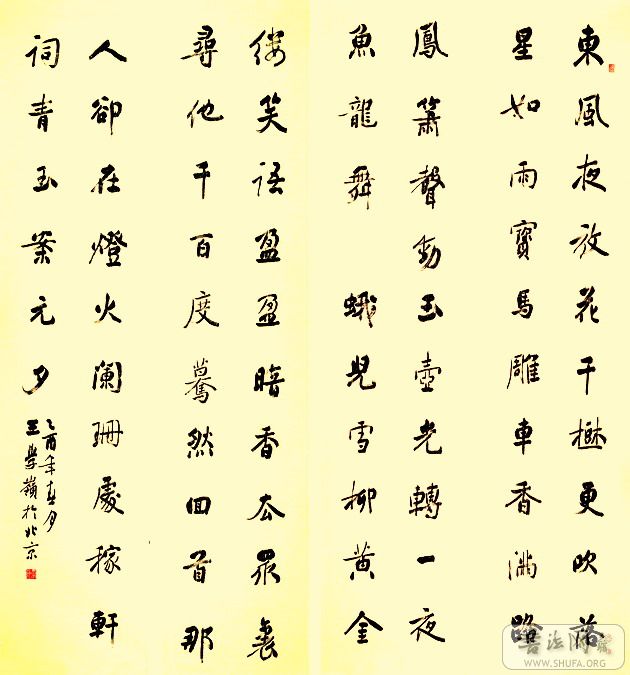 東風夜放花千樹更吹落
星如雨寶馬雕車香滿路
鳳簫聲動玉壺光轉一夜
魚龍舞 蛾兒雪柳黃金
縷笑語盈盈暗香去眾裏
尋他千百度驀然回首那
人卻在燈火闌珊處稼軒
詞青玉案元夕
乙酉年春月
王學嶺於北京
書法網
WWW.SHUFA.ORG